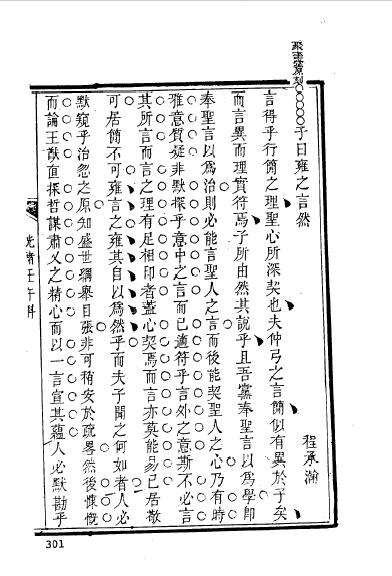 子曰雍之言然
程承瀚
言得乎行簡之理聖心所深契也夫仲弓之言簡似有異於子矣
而言異而理實符焉子所由然其說乎且吾黨奉聖言以為學卽
奉聖言以為治則必能言聖人之言而後能契聖人之心乃有時
雅意質疑非默探乎意中之言而已適符乎言外之意斯不必言
其所言而言之理有足相印者蓋心契焉而言亦莫能易已居敬
可居簡不可雍言之雍其自以為然乎而夫子聞之何如者人必
默窺乎治忽之原知盛世綱舉目張非可稍安於疏畧然後慷慨
而論王猷直探哲謀肅乂之精心而以一言宣其蘊人必默勘乎
光緒壬午科
301